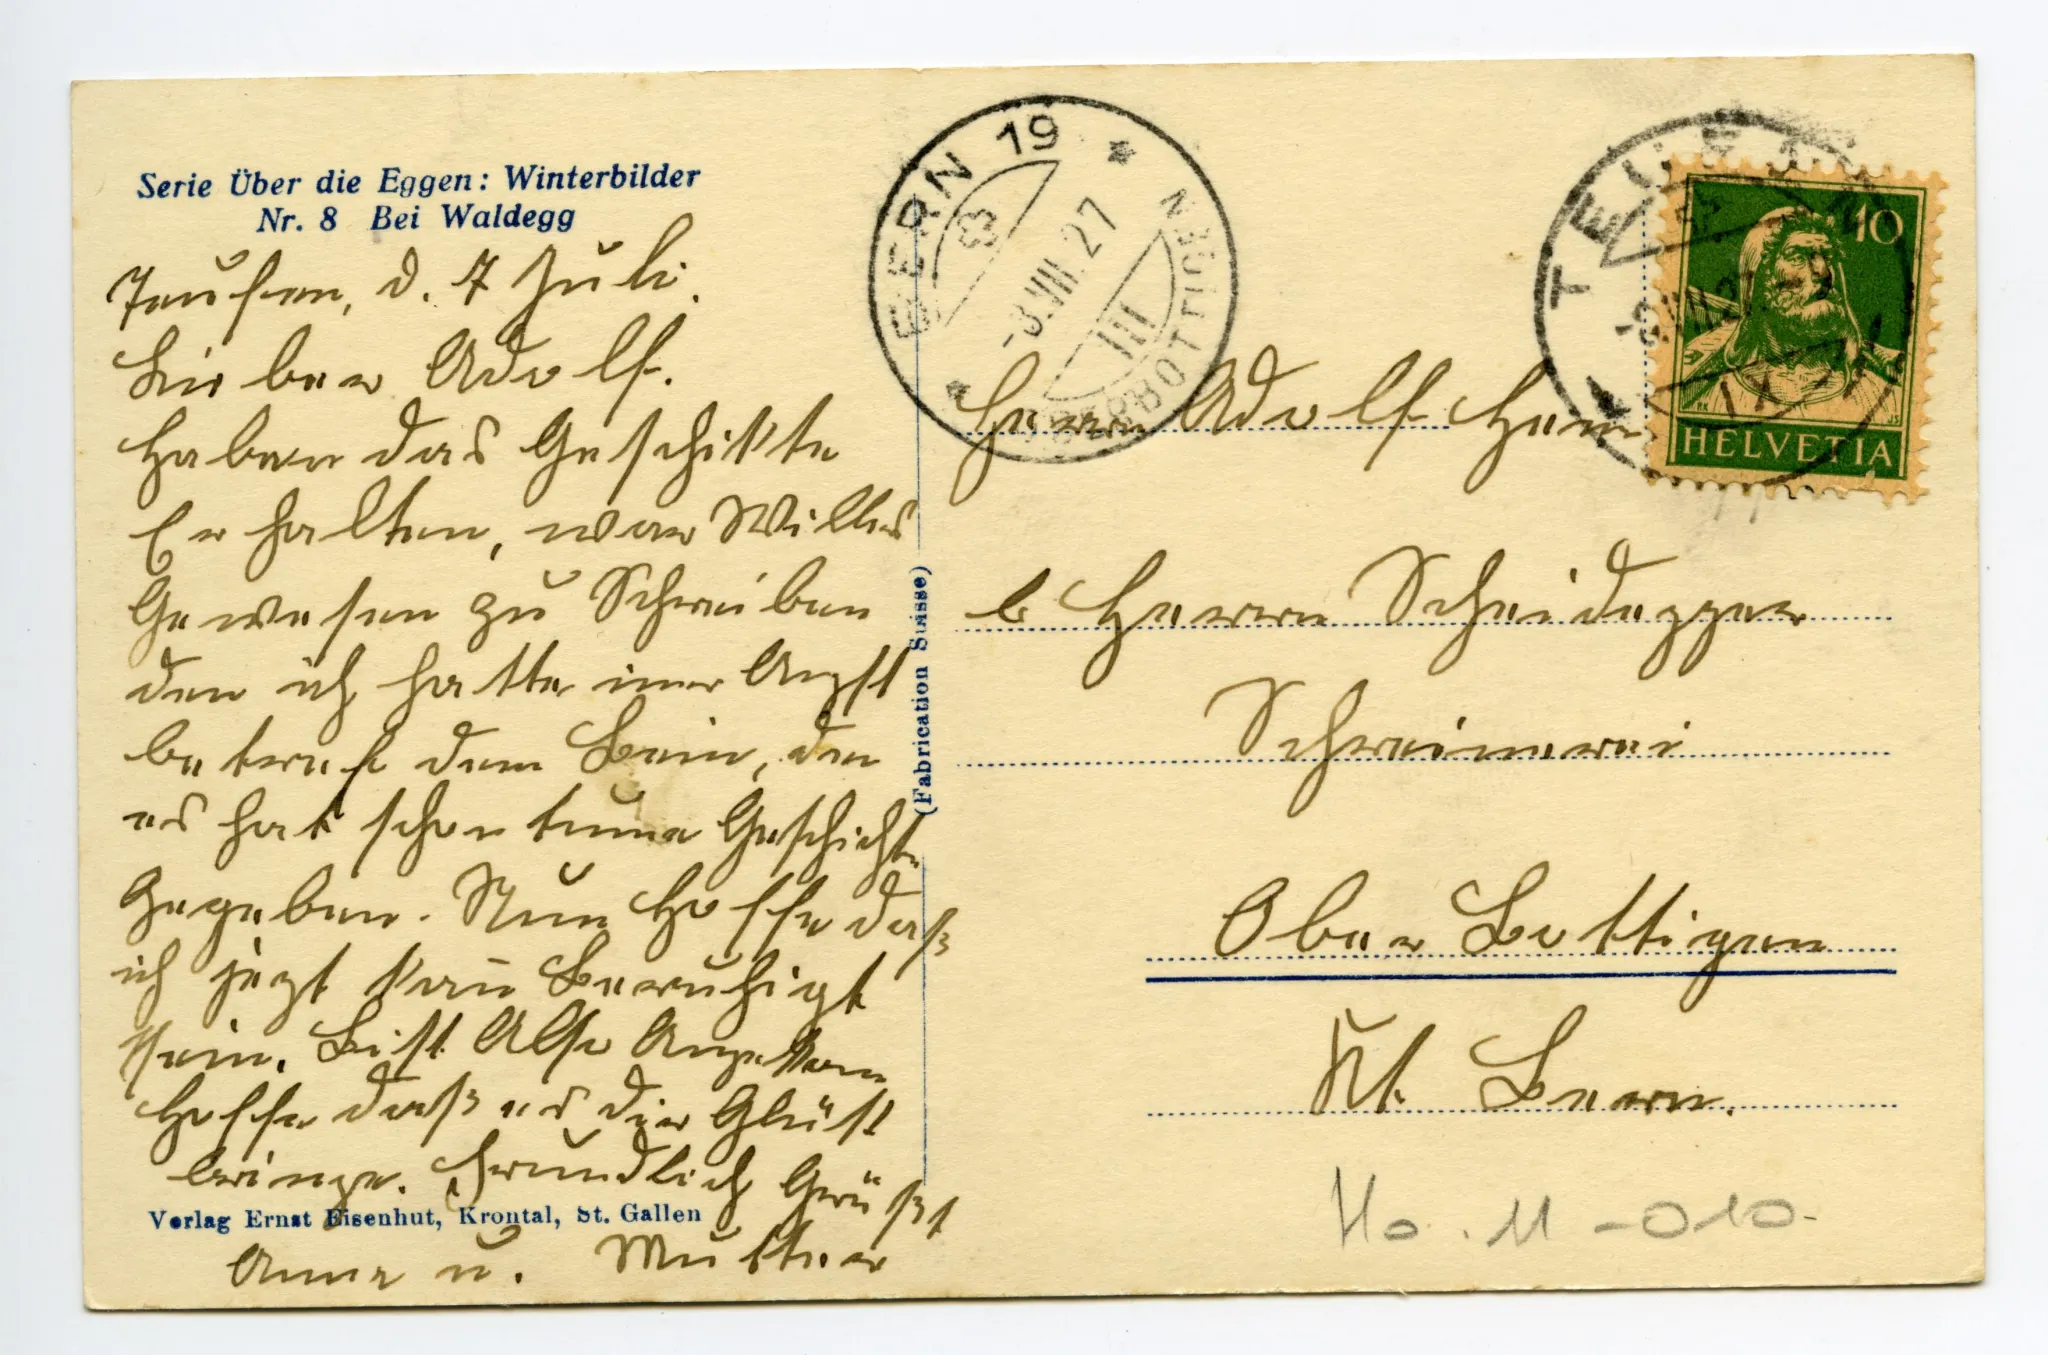 Serie Über die Eggen: Winterbilder
Nr. 8 Bei Waldegg
Teufen, d. 7 Juli.
Lieber Adolf.
Haben das Geschikte
Erhalten, war Willes
Gewesen zu Schreiben
den ich hatte imer Angst
betref dem Bein, den
es hat schon tume Geschicht
Gegeben. Nun Hoffe daß
ich jezt kan Beruhigt
sein. Bist Also
Hoffe daß es dir Glük
bringe. freundlich Grüßt
Anna u. Mutter
Verlag Ernst Eisenhut, Krontal, St. Gallen
(Fabrication Suisse)
BERN 19
-8.VII.27
III
OBERBOTTIGEN
TEUFEN
10
HELVETIA
Herrn Adolf
b Herrn Scheidegger
Schreinerei
Ober Bottigen
Kt. Bern.
Ho. 11 - 010-